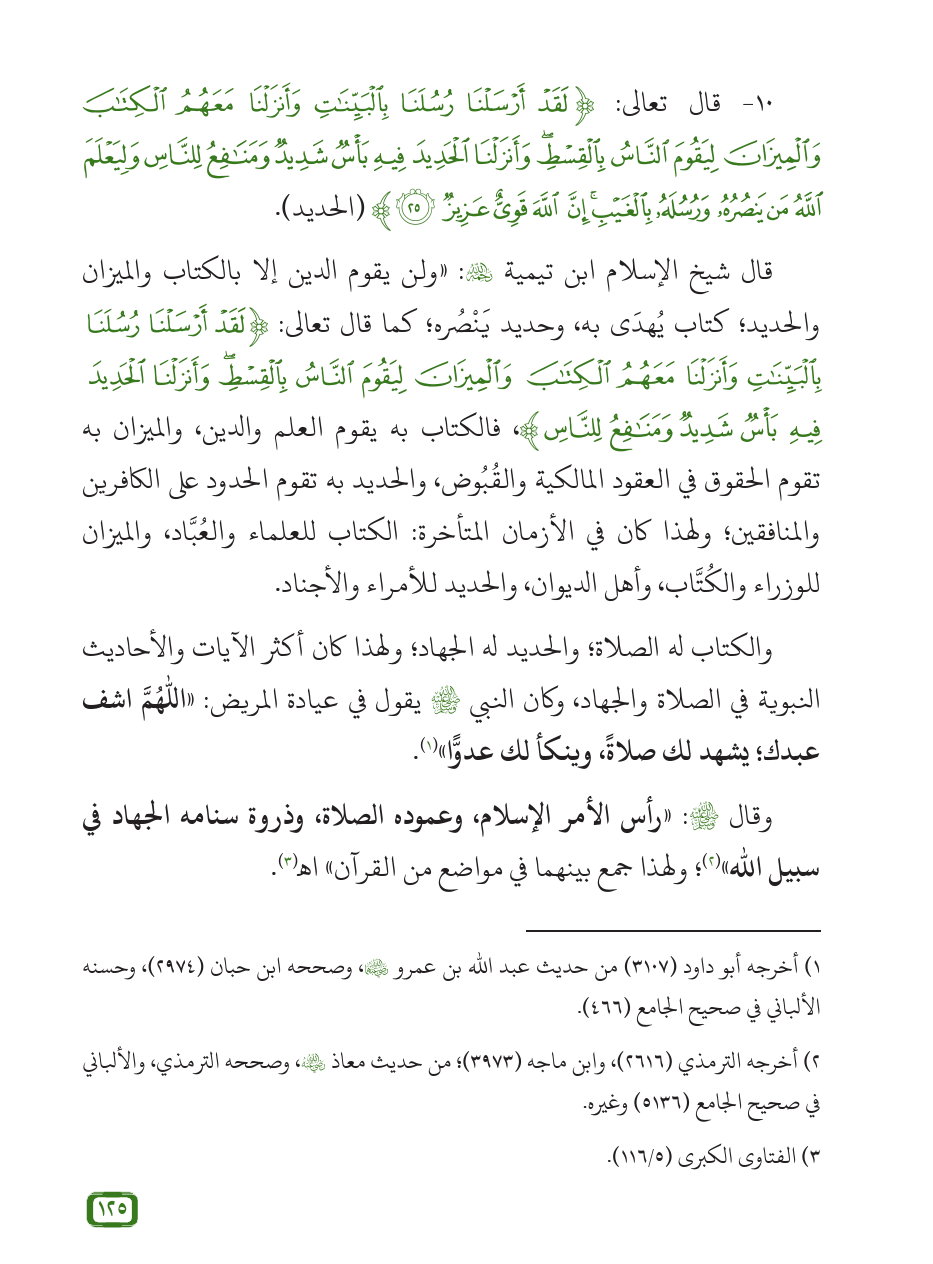 ١٠- قال تعالى: ﴿ لَقَدْ أَرْسَلْنَا رُسُلَنَا بِٱلْبَيِّنَٰتِ وَأَنزَلْنَا مَعَهُمُ ٱلْكِتَٰبَ
وَٱلْمِيزَانَ لِيَقُومَ ٱلنَّاسُ بِٱلْقِسْطِۖ وَأَنزَلْنَا ٱلْحَدِيدَ فِيهِ بَأْسٌ شَدِيدٌ وَمَنَٰفِعُ لِلنَّاسِ وَلِيَعْلَمَ
ٱللَّهُ مَن يَنصُرُهُۥ وَرُسُلَهُۥ بِٱلْغَيْبِۚ إِنَّ ٱللَّهَ قَوِىٌّ عَزِيزٌ ٢٥ ﴾ (الحديد).
قال شيخ الإسلام ابن تيمية رحمه الله: «ولن يقوم الدين إلا بالكتاب والميزان
والحديد؛ كتاب يُهدَى به، وحديد يَنْصُره؛ كما قال تعالى: ﴿لَقَدْ أَرْسَلْنَا رُسُلَنَا
بِٱلْبَيِّنَٰتِ وَأَنزَلْنَا مَعَهُمُ ٱلْكِتَٰبَ وَٱلْمِيزَانَ لِيَقُومَ ٱلنَّاسُ بِٱلْقِسْطِۖ وَأَنزَلْنَا ٱلْحَدِيدَ
فِيهِ بَأْسٌ شَدِيدٌ وَمَنَٰفِعُ لِلنَّاسِ﴾، فالكتاب به يقوم العلم والدين، والميزان به
تقوم الحقوق في العقود المالكية والقُبُوض، والحديد به تقوم الحدود على الكافرين
والمنافقين؛ ولهذا كان في الأزمان المتأخرة: الكتاب للعلماء والعُبَّاد، والميزان
للوزراء والكُتَّاب، وأهل الديوان، والحديد للأمراء والأجناد.
والكتاب له الصلاة؛ والحديد له الجهاد؛ ولهذا كان أكثر الآيات والأحاديث
النبوية في الصلاة والجهاد، وكان النبي ﷺ يقول في عيادة المريض: «اللهُمَّ اشف
عبدك؛ يشهد لك صلاةً، وينكأ لك عدوًّا»(١).
وقال ﷺ: «رأس الأمر الإسلام، وعموده الصلاة، وذروة سنامه الجهاد في
سبيل الله»(٢)؛ ولهذا جمع بينهما في مواضع من القرآن» اهـ(٣).
١) أخرجه أبو داود (٣١٠٧) من حديث عبد الله بن عمرو، وصححه ابن حبان (٢٩٧٤)، وحسنه
الألباني في صحيح الجامع (٤٦٦).
٢) أخرجه الترمذي (٢٦١٦)، وابن ماجه (٣٩٧٣)؛ من حديث معاذ، وصححه الترمذي، والألباني
في صحيح الجامع (٥١٣٦) وغيره.
٣) الفتاوى الكبرى (١١٦/٥).
١٢٥